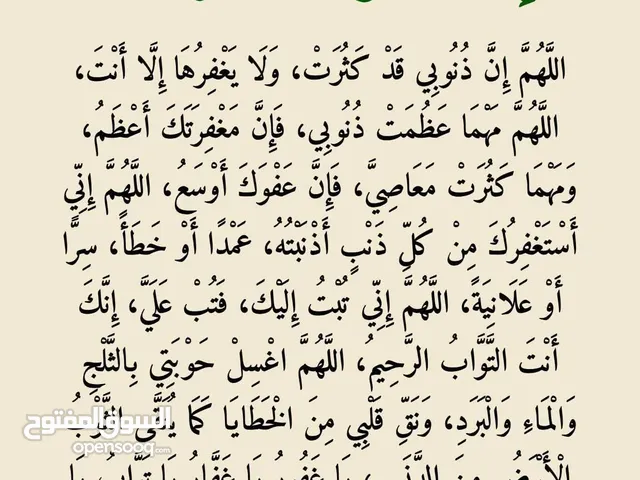 اللَّهُمَّ إِنَّ ذُنُوبِي قَدْ كَثُرَتْ، وَلَا يَغْفِرُهَا إِلَّا أَنْتَ،
اللَّهُمَّ مَهْمَا عَظُمَتْ ذُنُوبِي، فَإِنَّ مَغْفِرَتَكَ أَعْظَمُ،
وَمَهْمَا كَثُرَتْ مَعَاصِيَّ، فَإِنَّ عَفْوَكَ أَوْسَعُ، اللَّهُمَّ إِنِّي
أَسْتَغْفِرُكَ مِنْ كُلِّ ذَنْبٍ أَذْنَبْتُهُ، عَمْدًا أَوْ خَطَأً، سِرًّا
أَوْ عَلَانِيَةً، اللَّهُمَّ إِنِّي تُبْتُ إِلَيْكَ، فَتُبْ عَلَيَّ، إِنَّكَ
أَنْتَ التَّوَّابُ الرَّحِيمُ، اللَّهُمَّ اغْسِلْ حَوْبَتِي بِالثَّلْجِ
وَالْمَاءِ وَالْبَرَدِ، وَنَقِّ قَلْبِي مِنَ الْخَطَايَا كَمَا يُنَقَّى الثَّوْبُ
السوق المفتوح
opensooq.com
الْأَبْيَضُ مِنَ الدَّنَسِ، يَا غَفُورُ يَا غَفَّارُ يَا تَوَّابُ يَا